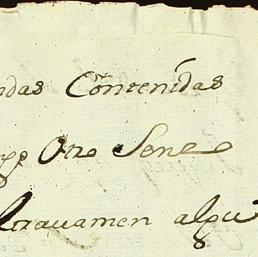 ndas Contenidas
Otro Sene
Grauamen algu